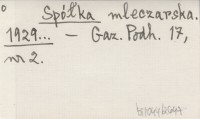 Spółka mleczarska.
1929... — Gaz. Podh. 17,
nr 2.